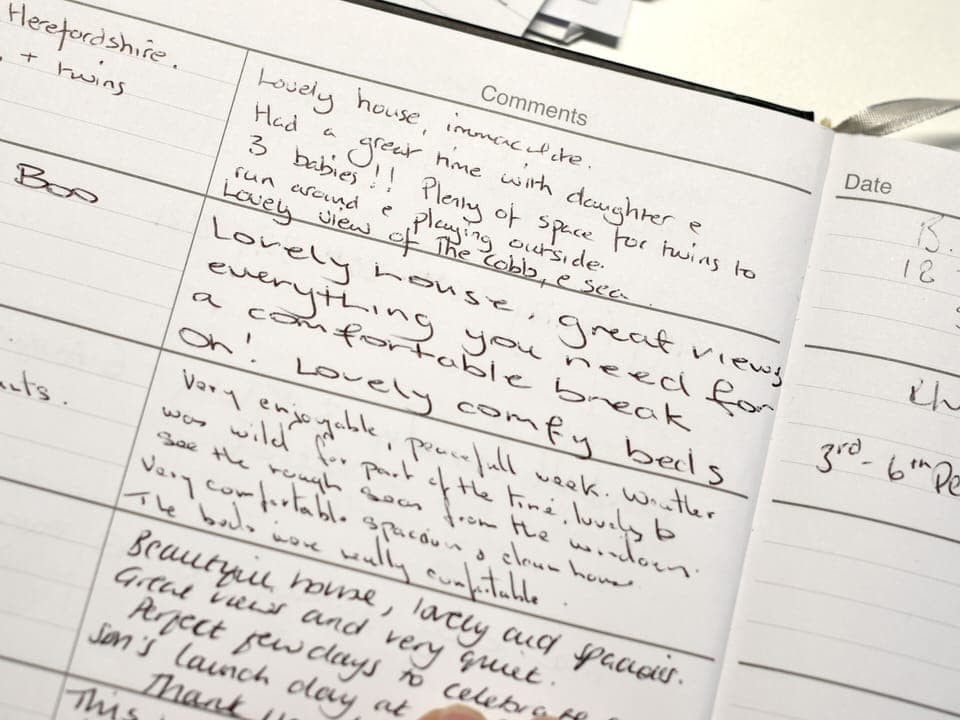 Herefordshire.
+ twins
Comments
Lovely house, immaculate.
Had a great time with daughter &
3 babies!! Plenty of space for twins to
run around & playing outside.
Lovely view of The Cobb, & sea.
Boo
Lovely house, great views
everything you need for
a comfortable break
Oh! Lovely comfy beds
Very enjoyable, peacefull week. Weather
was wild for part of the time, lovely to
see the rough seas from the windows.
Very comfortable spacious & clean house.
The beds were really comfortable.
Beautiful house, lovely and spacious.
Great views and very quiet.
Perfect few days to celebrate
son's launch day at
Thank
This
Date
18
3rd - 6th De